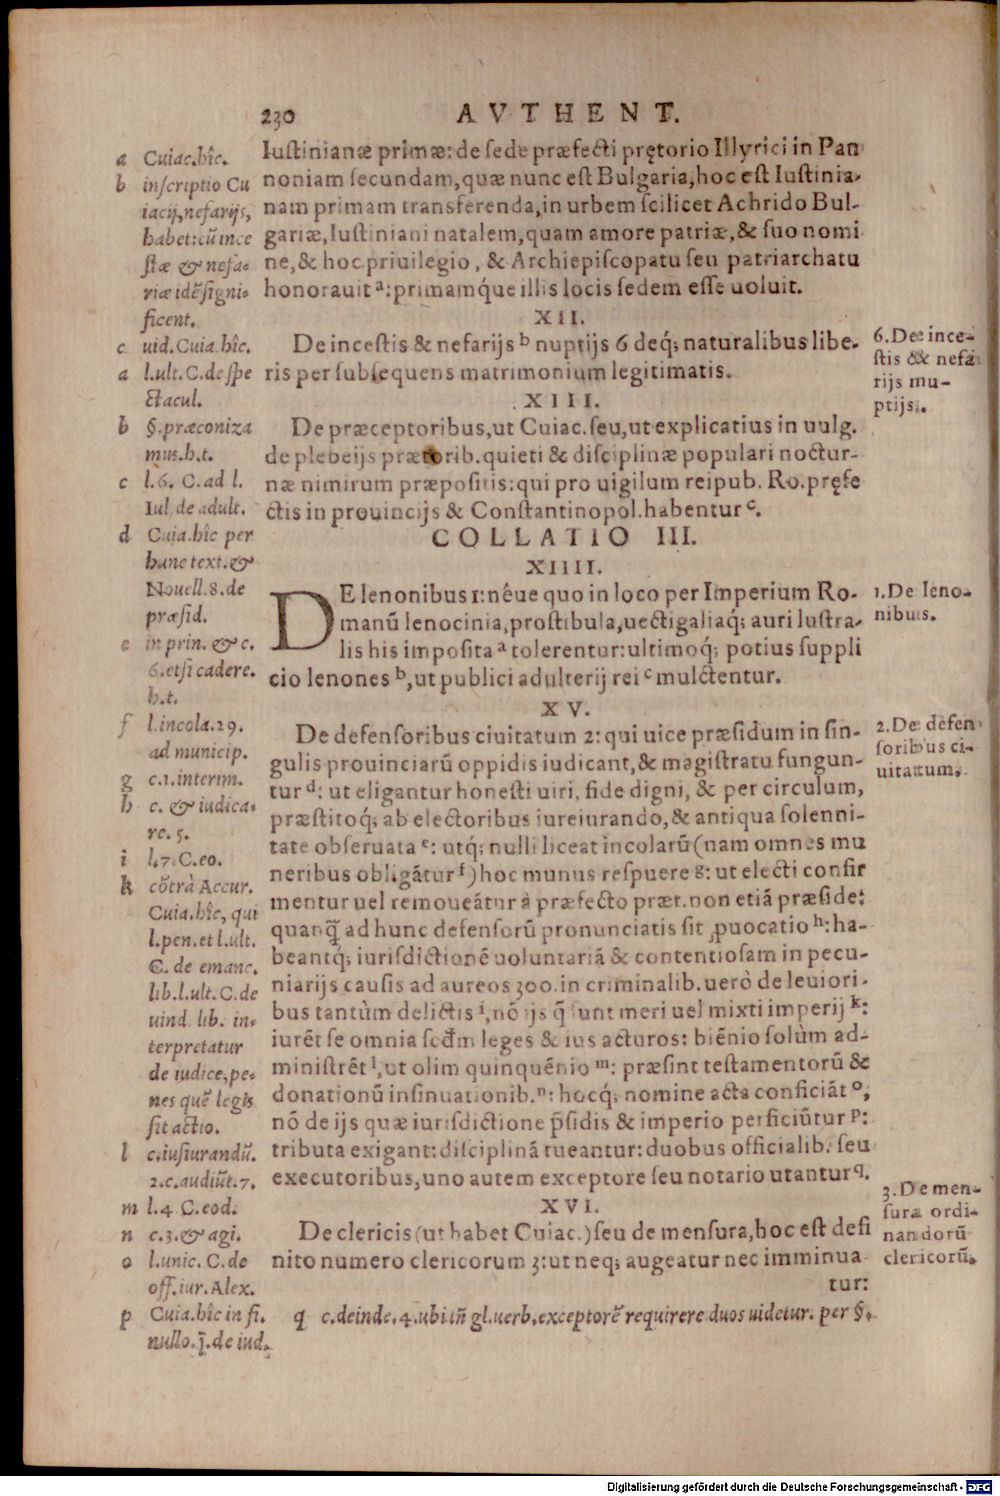 230 AVTHENT.
Iustinianæ primæ: de sede præfecti prętorio Illyrici in Pan
noniam secundam, quæ nunc est Bulgaria, hoc est Iustinia-
nam primam transferenda, in urbem scilicet Achrido Bul-
gariæ, Iustiniani natalem, quam amore patriæ, & suo nomi
ne, & hoc priuilegio, & Archiepiscopatu seu patriarchatu
honorauit a: primamq́ue illis locis sedem esse uoluit.
XII.
De incestis & nefarijs b nuptijs 6 deq́; naturalibus libe-
ris per subsequens matrimonium legitimatis.
XIII.
De præceptoribus, ut Cuiac. seu, ut explicatius in uulg.
de plebeijs prætorib. quieti & disciplinæ populari noctur-
næ nimirum præpositis: qui pro uigilum reipub. Ro. pręfe
ctis in prouincijs & Constantinopol. habentur c.
COLLATIO III.
XIIII.
DE lenonibus 1: néue quo in loco per Imperium Ro-
manū lenocinia, prostibula, uectigaliaq́; auri lustra-
lis his imposita a tolerentur: ultimoq́; potius suppli
cio lenones b, ut publici adulterij rei c mulctentur.
XV.
De defensoribus ciuitatum 2: qui uice præsidum in sin-
gulis prouinciarū oppidis iudicant, & magistratu fungun-
tur d: ut eligantur honesti uiri, fide digni, & per circulum,
præstitoq́; ab electoribus iureiurando, & antiqua solenni-
tate obseruata e: utq́; nulli liceat incolarū (nam omnes mu
neribus obligātur f) hoc munus respuere g: ut electi confir
mentur uel remoueātur à præfecto præt. non etiā præside:
quanq̄ ad hunc defensorū pronunciatis sit ꝓuocatio h: ha-
beantq́; iurisdictionē uoluntariā & contentiosam in pecu-
niarijs causis ad aureos 300. in criminalib. uerò de leuiori-
bus tantùm delictis i, nō ijs q̄ sunt meri uel mixti imperij k:
iurēt se omnia scd̄m leges & ius acturos: biēnio solùm ad-
ministrēt l, ut olim quinquēnio m: præsint testamentorū &
donationū insinuationib. n: hocq́; nomine acta conficiāt o,
nō de ijs quæ iurisdictione p̄sidis & imperio perficiūtur p:
tributa exigant: disciplinā tueantur: duobus officialib. seu
executoribus, uno autem exceptore seu notario utantur q.
XVI.
De clericis (ut habet Cuiac.) seu de mensura, hoc est defi
nito numero clericorum 3: ut neq; augeatur nec imminua
tur:
a Cuiac. hîc.
b inscriptio Cu
iacij, nefarijs,
habet: cū ince
stæ & nefa-
riæ idē signi-
ficent.
c uid. Cuia. hîc.
a l. ult. C. de spe
ctacul.
b §. præconiza
mus. h. t.
c l. 6. C. ad l.
Iul. de adult.
d Cuia. hîc per
hunc text. &
Nouell. 8. de
præsid.
e in prin. & c.
6. etsi cadere.
h. t.
f l. incola. 29.
ad municip.
g c. 1. interim.
h c. & iudica-
re. 5.
i l. 7. C. eo.
k cōtrà Accur.
Cuia. hîc, qui
l. pen. et l. ult.
C. de emanc.
lib. l. ult. C. de
uind. lib. in-
terpretatur
de iudice, pe-
nes quē legis
sit actio.
l c. iusiurandū.
2. c. audiūt. 7.
m l. 4. C. eod.
n c. 3. & agi.
o l. unic. C. de
off. iur. Alex.
p Cuia. hîc in fi.
nullo. de iud.
q c. deinde. 4. ubi tn̄ gl. uerb. exceptorē requirere duos uidetur. per §.
6. De ince-
stis & nefa
rijs nu-
ptijs.
1. De leno-
nibus.
2. De defen
soribus ci-
uitatum.
3. De men-
sura ordi-
nandorū
clericorū.
Digitalisierung gefördert durch die Deutsche Forschungsgemeinschaft - DFG